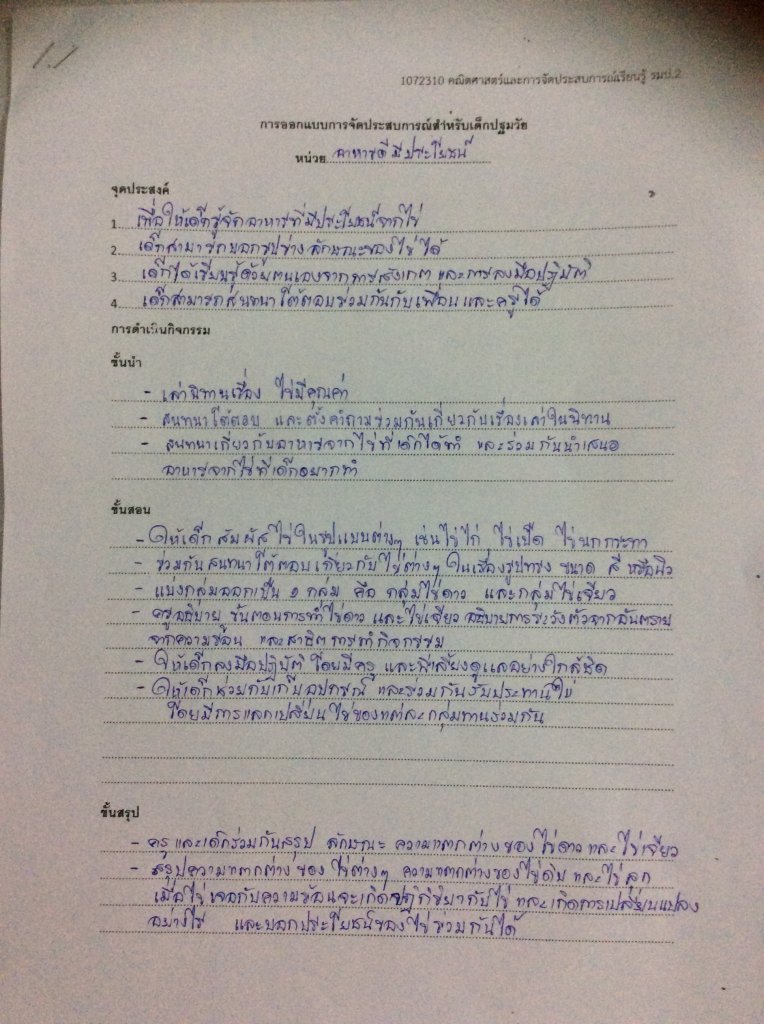 1.1
1072310 คณิตศาสตร์และการจัดประสบการณ์เรียนรู้ รมป.2
การออกแบบการจัดประสบการณ์สำหรับเด็กปฐมวัย
หน่วย อาหารดีมีประโยชน์
จุดประสงค์
1. เพื่อให้เด็กรู้จักอาหารที่มีประโยชน์จากไข่
2. เด็กสามารถบอกรูปร่างลักษณะของไข่ได้
3. เด็กได้เรียนรู้ด้วยตนเองจากการสังเกต และการลงมือปฏิบัติ
4. เด็กสามารถสนทนาโต้ตอบร่วมกันกับเพื่อนและครูได้
การดำเนินกิจกรรม
ขั้นนำ
- เล่านิทานเรื่อง ไข่มีคุณค่า
- สนทนาโต้ตอบ และตั้งคำถามร่วมกันเกี่ยวกับเรื่องเล่าในนิทาน
- สนทนาเกี่ยวกับอาหารจากไข่ที่เด็กได้ทำ และร่วมกันนำเสนอ
อาหารจากไข่ที่เด็กอยากทำ
ขั้นสอน
- ให้เด็กสัมผัสไข่ในรูปแบบต่างๆ เช่นไข่ไก่ ไข่เป็ด ไข่นกกระทา
- ร่วมกันสนทนาโต้ตอบเกี่ยวกับไข่ต่างๆ ในเรื่องรูปทรง ขนาด สี หรือผิว
- แบ่งกลุ่มออกเป็น ๒ กลุ่ม คือ กลุ่มไข่ดาว และกลุ่มไข่เจียว
- ครูอธิบาย ขั้นตอนการทำไข่ดาว และไข่เจียว อธิบายการระวังตัวจากอันตราย
จากความร้อน และสาธิตการทำกิจกรรม
- ให้เด็กลงมือปฏิบัติ โดยมีครู และพี่เลี้ยงดูแลอย่างใกล้ชิด
- ให้เด็กช่วยกันเก็บอุปกรณ์ และร่วมกันรับประทานไข่
โดยมีการแลกเปลี่ยนไข่ของแต่ละกลุ่มทานร่วมกัน
ขั้นสรุป
- ครูและเด็กร่วมกันสรุป ลักษณะ ความแตกต่างของไข่ดาวและไข่เจียว
- สรุปความแตกต่างของไข่ต่างๆ ความแตกต่างของไข่ดิบและไข่สุก
เมื่อไข่เจอกับความร้อนจะเกิดปฏิกิริยากับไข่ และเกิดการเปลี่ยนแปลง
อย่างไร และบอกประโยชน์ของไข่ร่วมกันได้